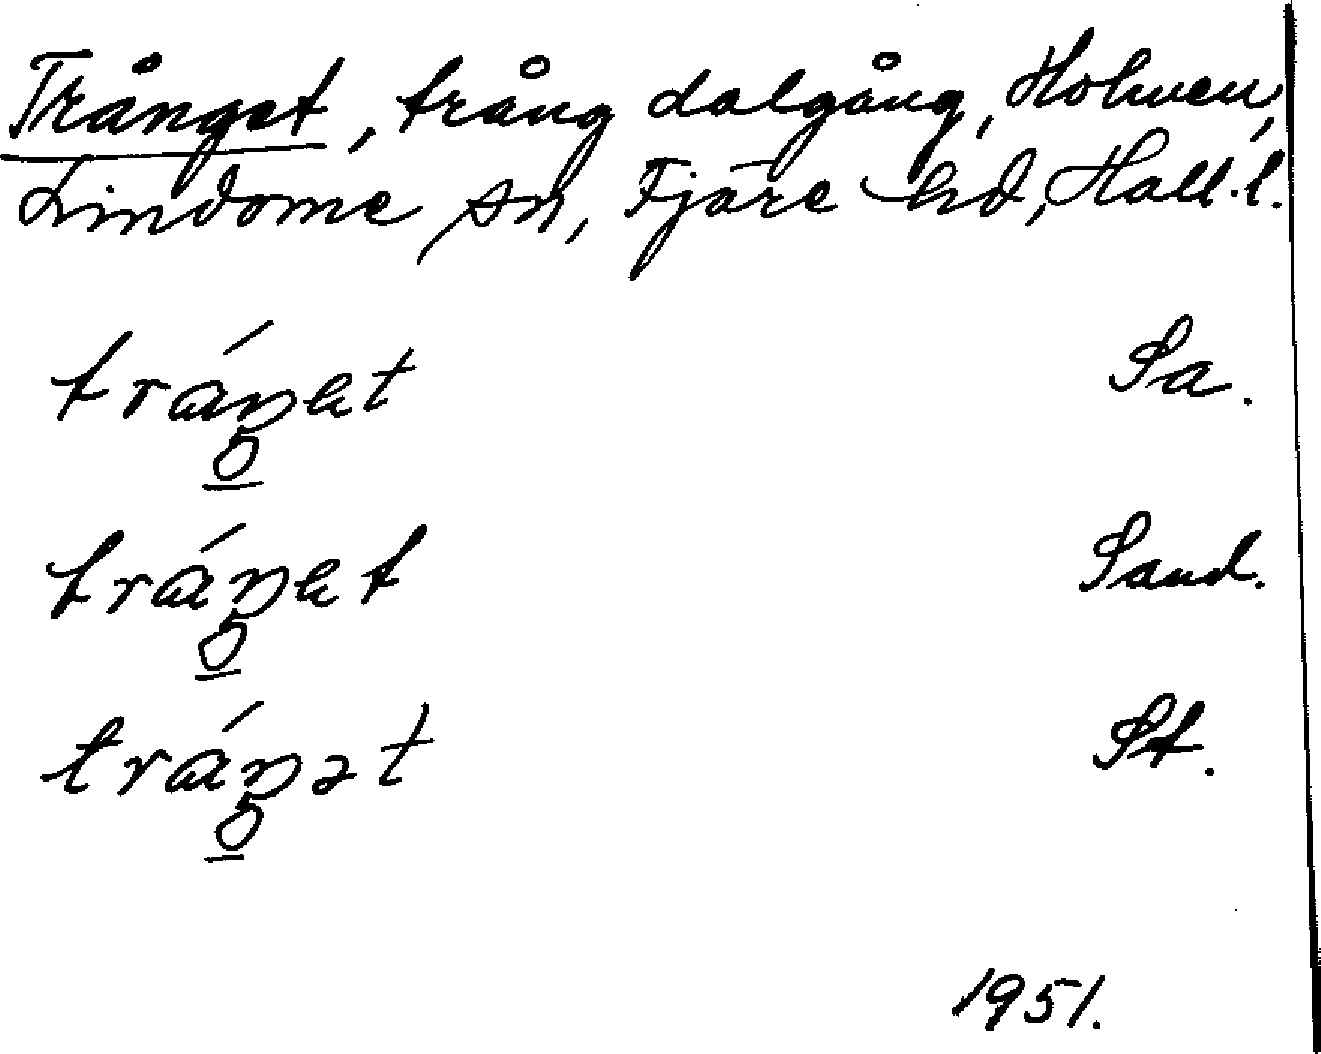 Trånget, trång dalgång, Holmen,
Lindome sn, Fjäre hd, Hall. l.
tráŋɛt Sa.
tráŋɛt Sand.
tráŋət St.
1951.